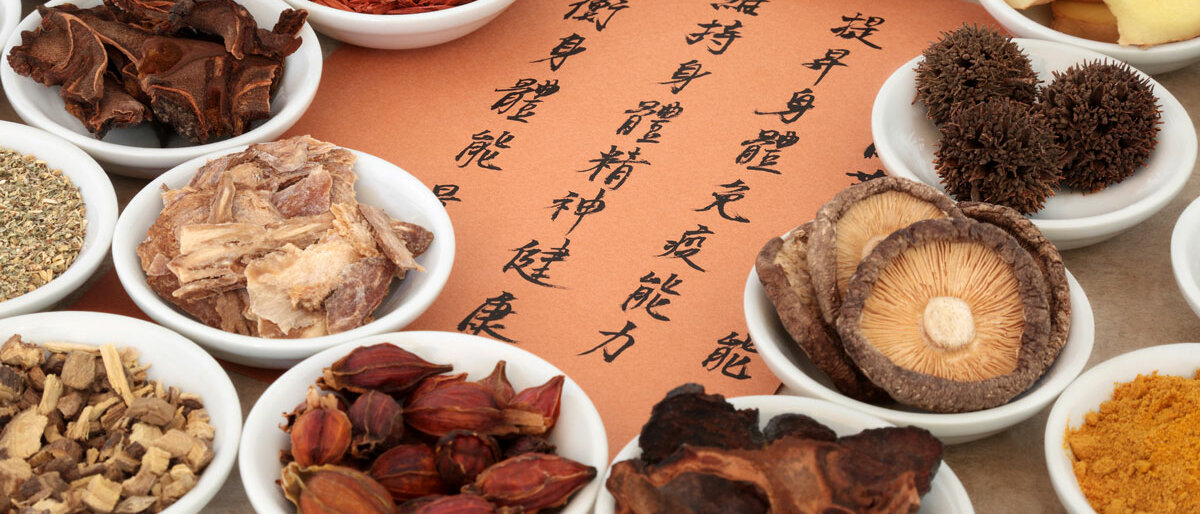 能
提昇身體免疫能力
持身體精神健康
衡身體能